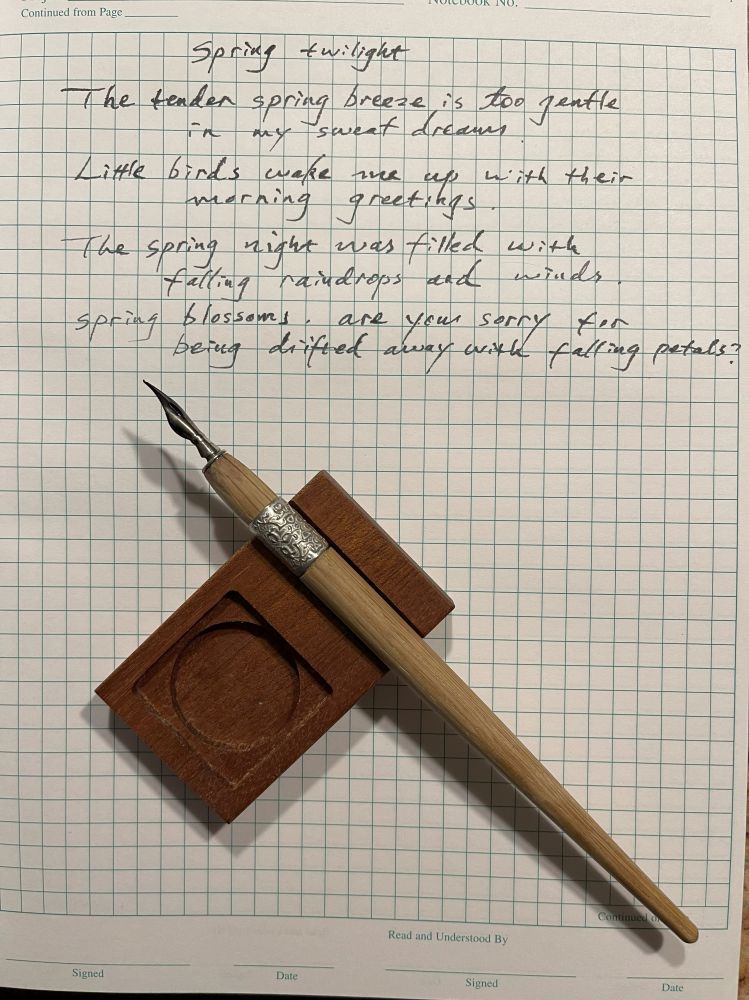 Notebook No.
Continued from Page
Spring twilight
The tender spring breeze is too gentle
in my sweat dreams.
Little birds wake me up with their
morning greetings.
The spring night was filled with
falling raindrops and winds.
spring blossoms. are your sorry for
being driifted away with falling petals?
Continued o
Read and Understood By
Signed
Date
Signed
Date